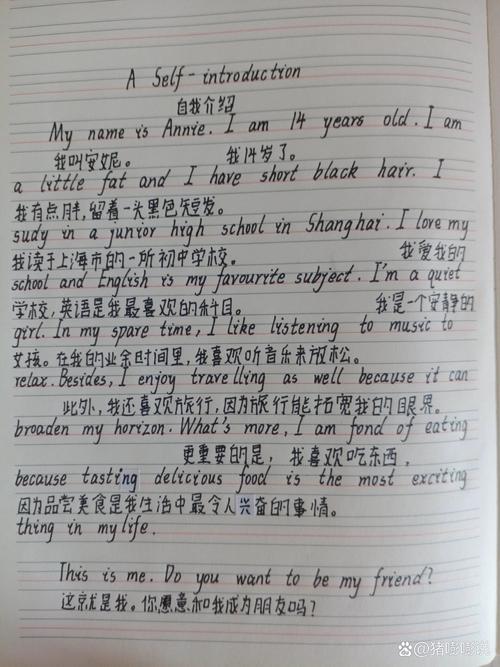 A Self-introduction
自我介绍
My name is Annie. I am 14 years old. I am
我叫安妮。 我14岁了。
a little fat and I have short black hair. I
我有点胖,留着一头黑色短发。
sudy in a junior high school in Shanghai. I love my
我读于上海市的一所初中学校。 我爱我的
school and English is my favourite subject. I'm a quiet
学校,英语是我最喜欢的科目。 我是一个安静的
girl. In my spare time, I like listening to music to
女孩。在我的业余时间里,我喜欢听音乐来放松。
relax. Besides, I enjoy travelling as well because it can
此外,我还喜欢旅行,因为旅行能拓宽我的眼界。
broaden my horizon. What's more, I am fond of eating
更重要的是,我喜欢吃东西,
because tasting delicious food is the most exciting
因为品尝美食是我生活中最令人兴奋的事情。
thing in my life.
This is me. Do you want to be my friend?
这就是我。你愿意和我成为朋友吗?
@猪嘭嘭说